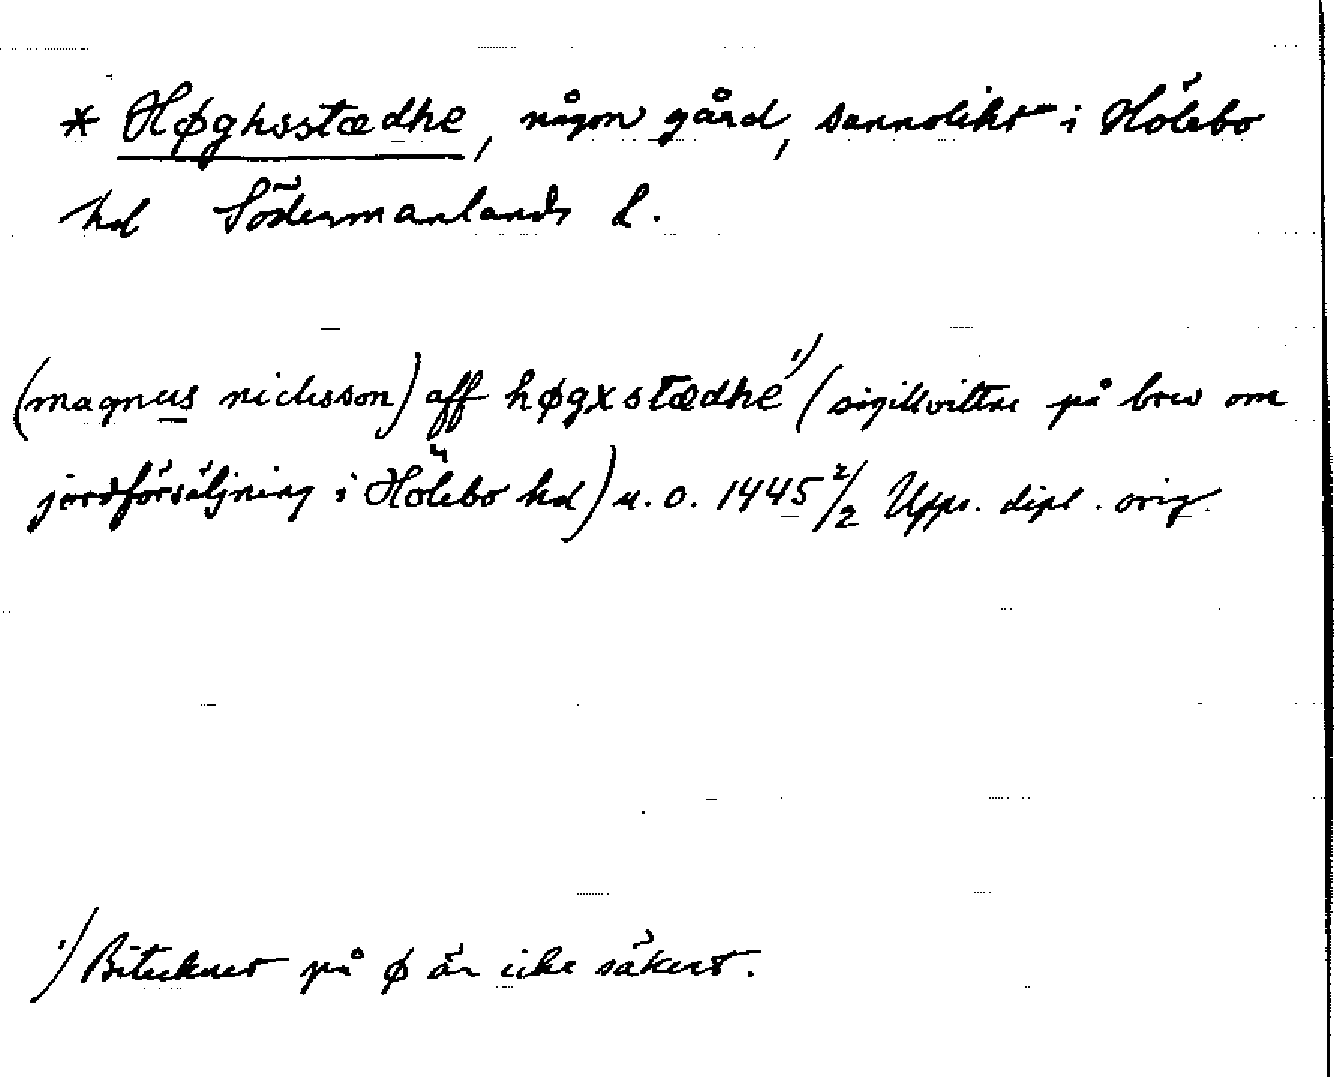 * Høghsstædhe, någon gård, sannolikt i Hölebo
hd Södermanlands L.
(magnus niclisson) aff høgxstædhe ¹⁾ (sigillvittne på brev om
jordförsäljning i Hölebo hd) u. o. 1445 2/2 Upps. dipl. orig.
¹⁾ Bitecknet på ø är icke säkert.